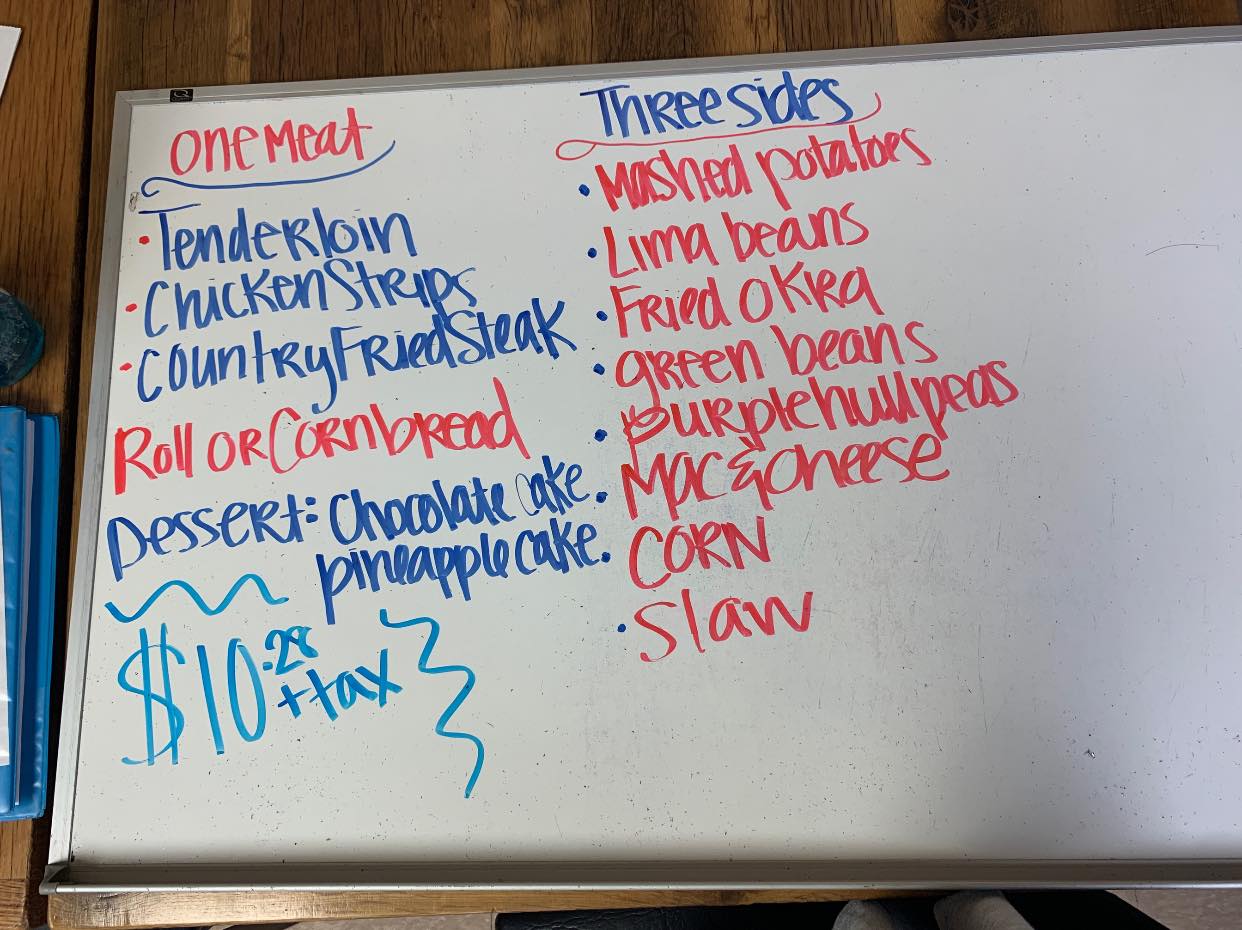 One Meat
• Tenderloin
• Chicken Strips
• Country Fried Steak
Roll or Cornbread
Dessert: Chocolate cake
pineapple cake
$10.28
+ tax
Three sides
• Mashed potatoes
• Lima beans
• Fried okra
• green beans
• purplehull peas
• Mac & Cheese
• CORN
• slaw